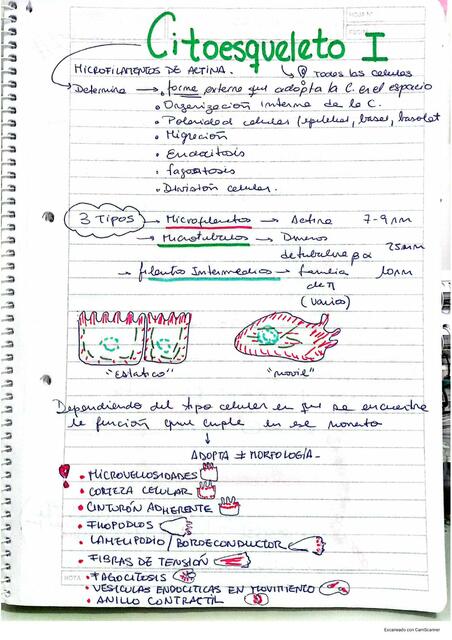 Citoesqueleto I
MICROFILAMENTOS DE ACTINA. → Todas las celulas
Determina → • forma externa que adopta la C. en el espacio
• Organización interna de la C.
• Polaridad celular (epitelial, basal, basolat
• Migración
• Endocitosis
• fagocitosis
• División celular.
3 TIPOS → Microfilamentos → Actina 7-9 nm
→ Microtubulos → Dimeros de tubulina β α 25 nm
→ filamento Intermedios → familia de π (varios) 10 nm
"Estatico" "movil"
Dependiendo del tipo celular en que se encuentre
la función que cumple en ese momento
↓
ADOPTA ≠ MORFOLOGÍA
! • MICROVELLOSIDADES
• CORTEZA CELULAR
• CINTURÓN ADHERENTE
• FILOPODIOS
• LAMELIPODIO / BORDE CONDUCTOR
• FIBRAS DE TENSIÓN
• FAGOCITOSIS
• VESÍCULAS ENDOCITICAS EN MOVIMIENTO
• ANILLO CONTRACTIL
NOTA
Escaneado con CamScanner